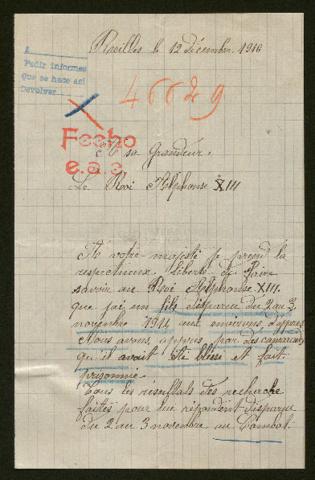 le 12 Décembre 1916
A
Pedir informes
que se hace así
Devolver
46629
Fecho
e.a.c.
A sa Grandeur.
Le Roi Alphonse XIII
A votre majesté je prend la
respectueux liberté de faire
savoir au Roi Alphonse XIII.
que jai un fils disparu du 2 au 3
novembre 1914 aux environs d'ypres
Nous avons appris par des camarades
qu'il avait été blessé et fait
prisonnié
Tous les résultats des recherche
faites pour lui répondent disparu
du 2 au 3 novembre au Combat